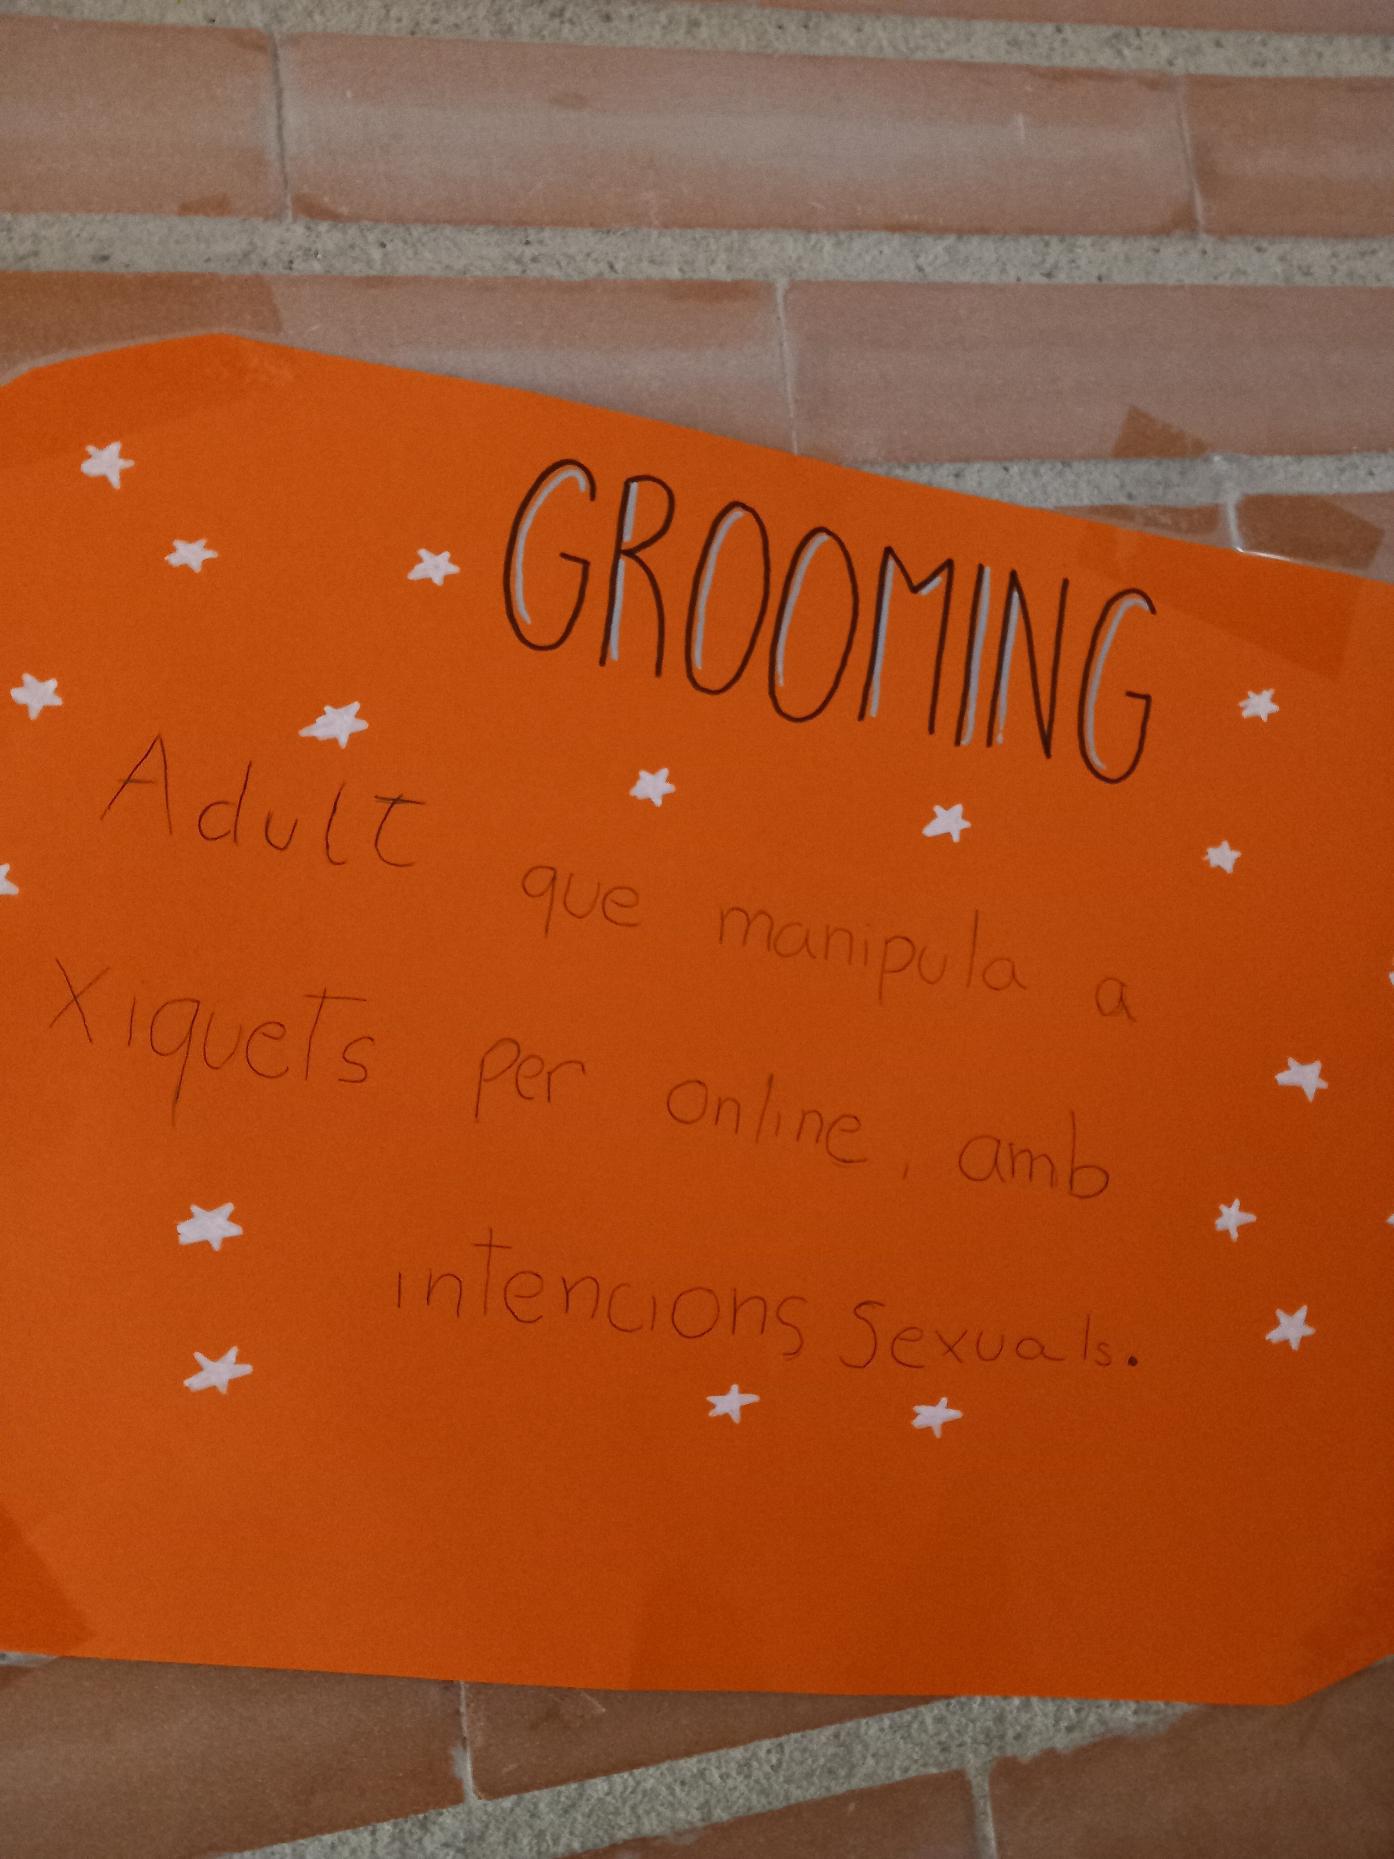 GROOMING
Adult que manipula a
Xiquets per online, amb
intencions sexuals.